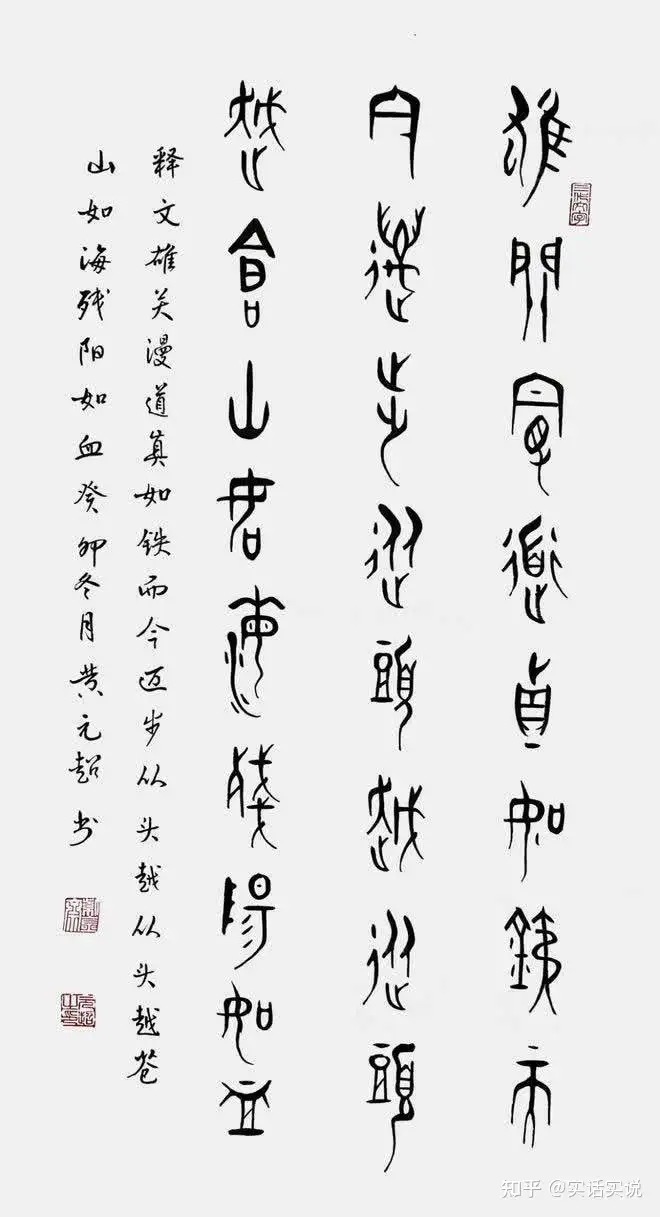 雄關漫道真如鐵而
今邁步從頭越從頭
越蒼山如海殘陽如血
释文雄关漫道真如铁而今迈步从头越从头越苍
山如海残阳如血癸卯冬月黄元超书
知乎 @实话实说